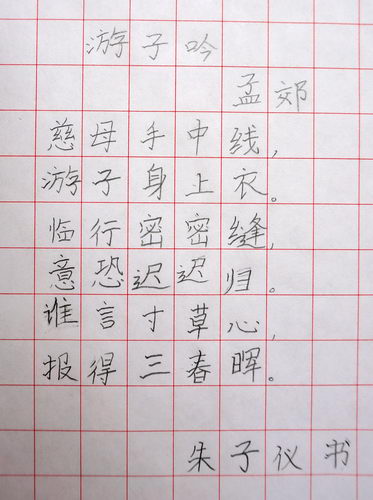 游子吟
孟郊
慈母手中线，
游子身上衣。
临行密密缝，
意恐迟迟归。
谁言寸草心，
报得三春晖。
朱子仪书